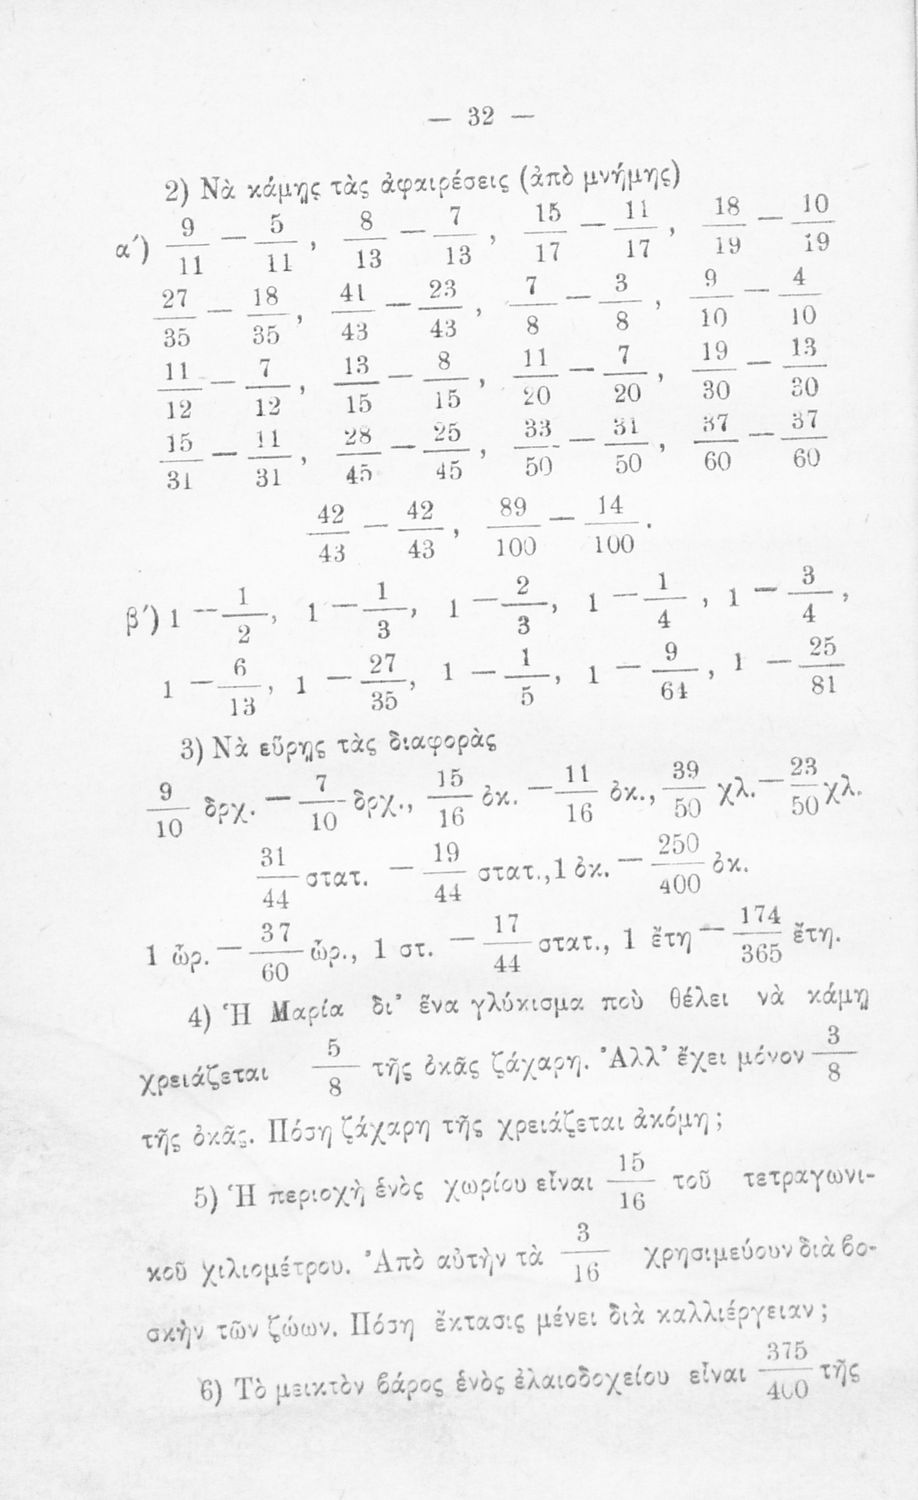 — 32 —
2) Νὰ κάμῃς τὰς ἀφαιρέσεις (ἀπὸ μνήμης)
α΄) 9/11 — 5/11 , 8/13 — 7/13 , 15/17 — 11/17 , 18/19 — 10/19
27/35 — 18/35 , 41/43 — 23/43 , 7/8 — 3/8 , 9/10 — 4/10
11/12 — 7/12 , 13/15 — 8/15 , 11/20 — 7/20 , 19/30 — 13/30
15/31 — 11/31 , 28/45 — 25/45 , 33/50 — 31/50 , 37/60 — 37/60
42/43 — 42/43 , 89/100 — 14/100 .
β΄) 1 — 1/2 , 1 — 1/3 , 1 — 2/3 , 1 — 1/4 , 1 — 3/4 ,
1 — 6/13 , 1 — 27/35 , 1 — 1/5 , 1 — 9/64 , 1 — 25/81
3) Νὰ εὕρῃς τὰς διαφορὰς
9/10 δρχ. — 7/10 δρχ., 15/16 ὀκ. — 11/16 ὀκ., 39/50 χλ. — 23/50 χλ.
31/44 στατ. — 19/44 στατ., 1 ὀκ. — 250/400 ὀκ.
1 ὥρ. — 37/60 ὥρ., 1 στ. — 17/44 στατ., 1 ἔτη — 174/365 ἔτη.
4) Ἡ Μαρία δι᾽ ἕνα γλύκισμα ποὺ θέλει νὰ κάμῃ
χρειάζεται 5/8 τῆς ὀκᾶς ζάχαρη. Ἀλλ᾽ ἔχει μόνον 3/8
τῆς ὀκᾶς. Πόση ζάχαρη τῆς χρειάζεται ἀκόμη;
5) Ἡ περιοχὴ ἑνὸς χωρίου εἶναι 15/16 τοῦ τετραγωνι-
κοῦ χιλιομέτρου. Ἀπὸ αὐτὴν τὰ 3/16 χρησιμεύουν διὰ βο-
σκὴν τῶν ζώων. Πόση ἔκτασις μένει διὰ καλλιέργειαν;
6) Τὸ μεικτὸν βάρος ἑνὸς ἐλαιοδοχείου εἶναι 375/400 τῆς